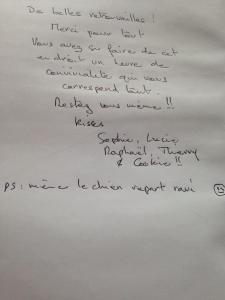 De belles retrouvailles !
Merci pour tout
Vous avez su faire de cet
endroit un heure de
convivialité qui vous
correspond tout.
Restez vous même !!
Kisses
Sophie, Lucie,
Raphaël, Thierry
& Cookie !!
PS : même le chien repart ravi